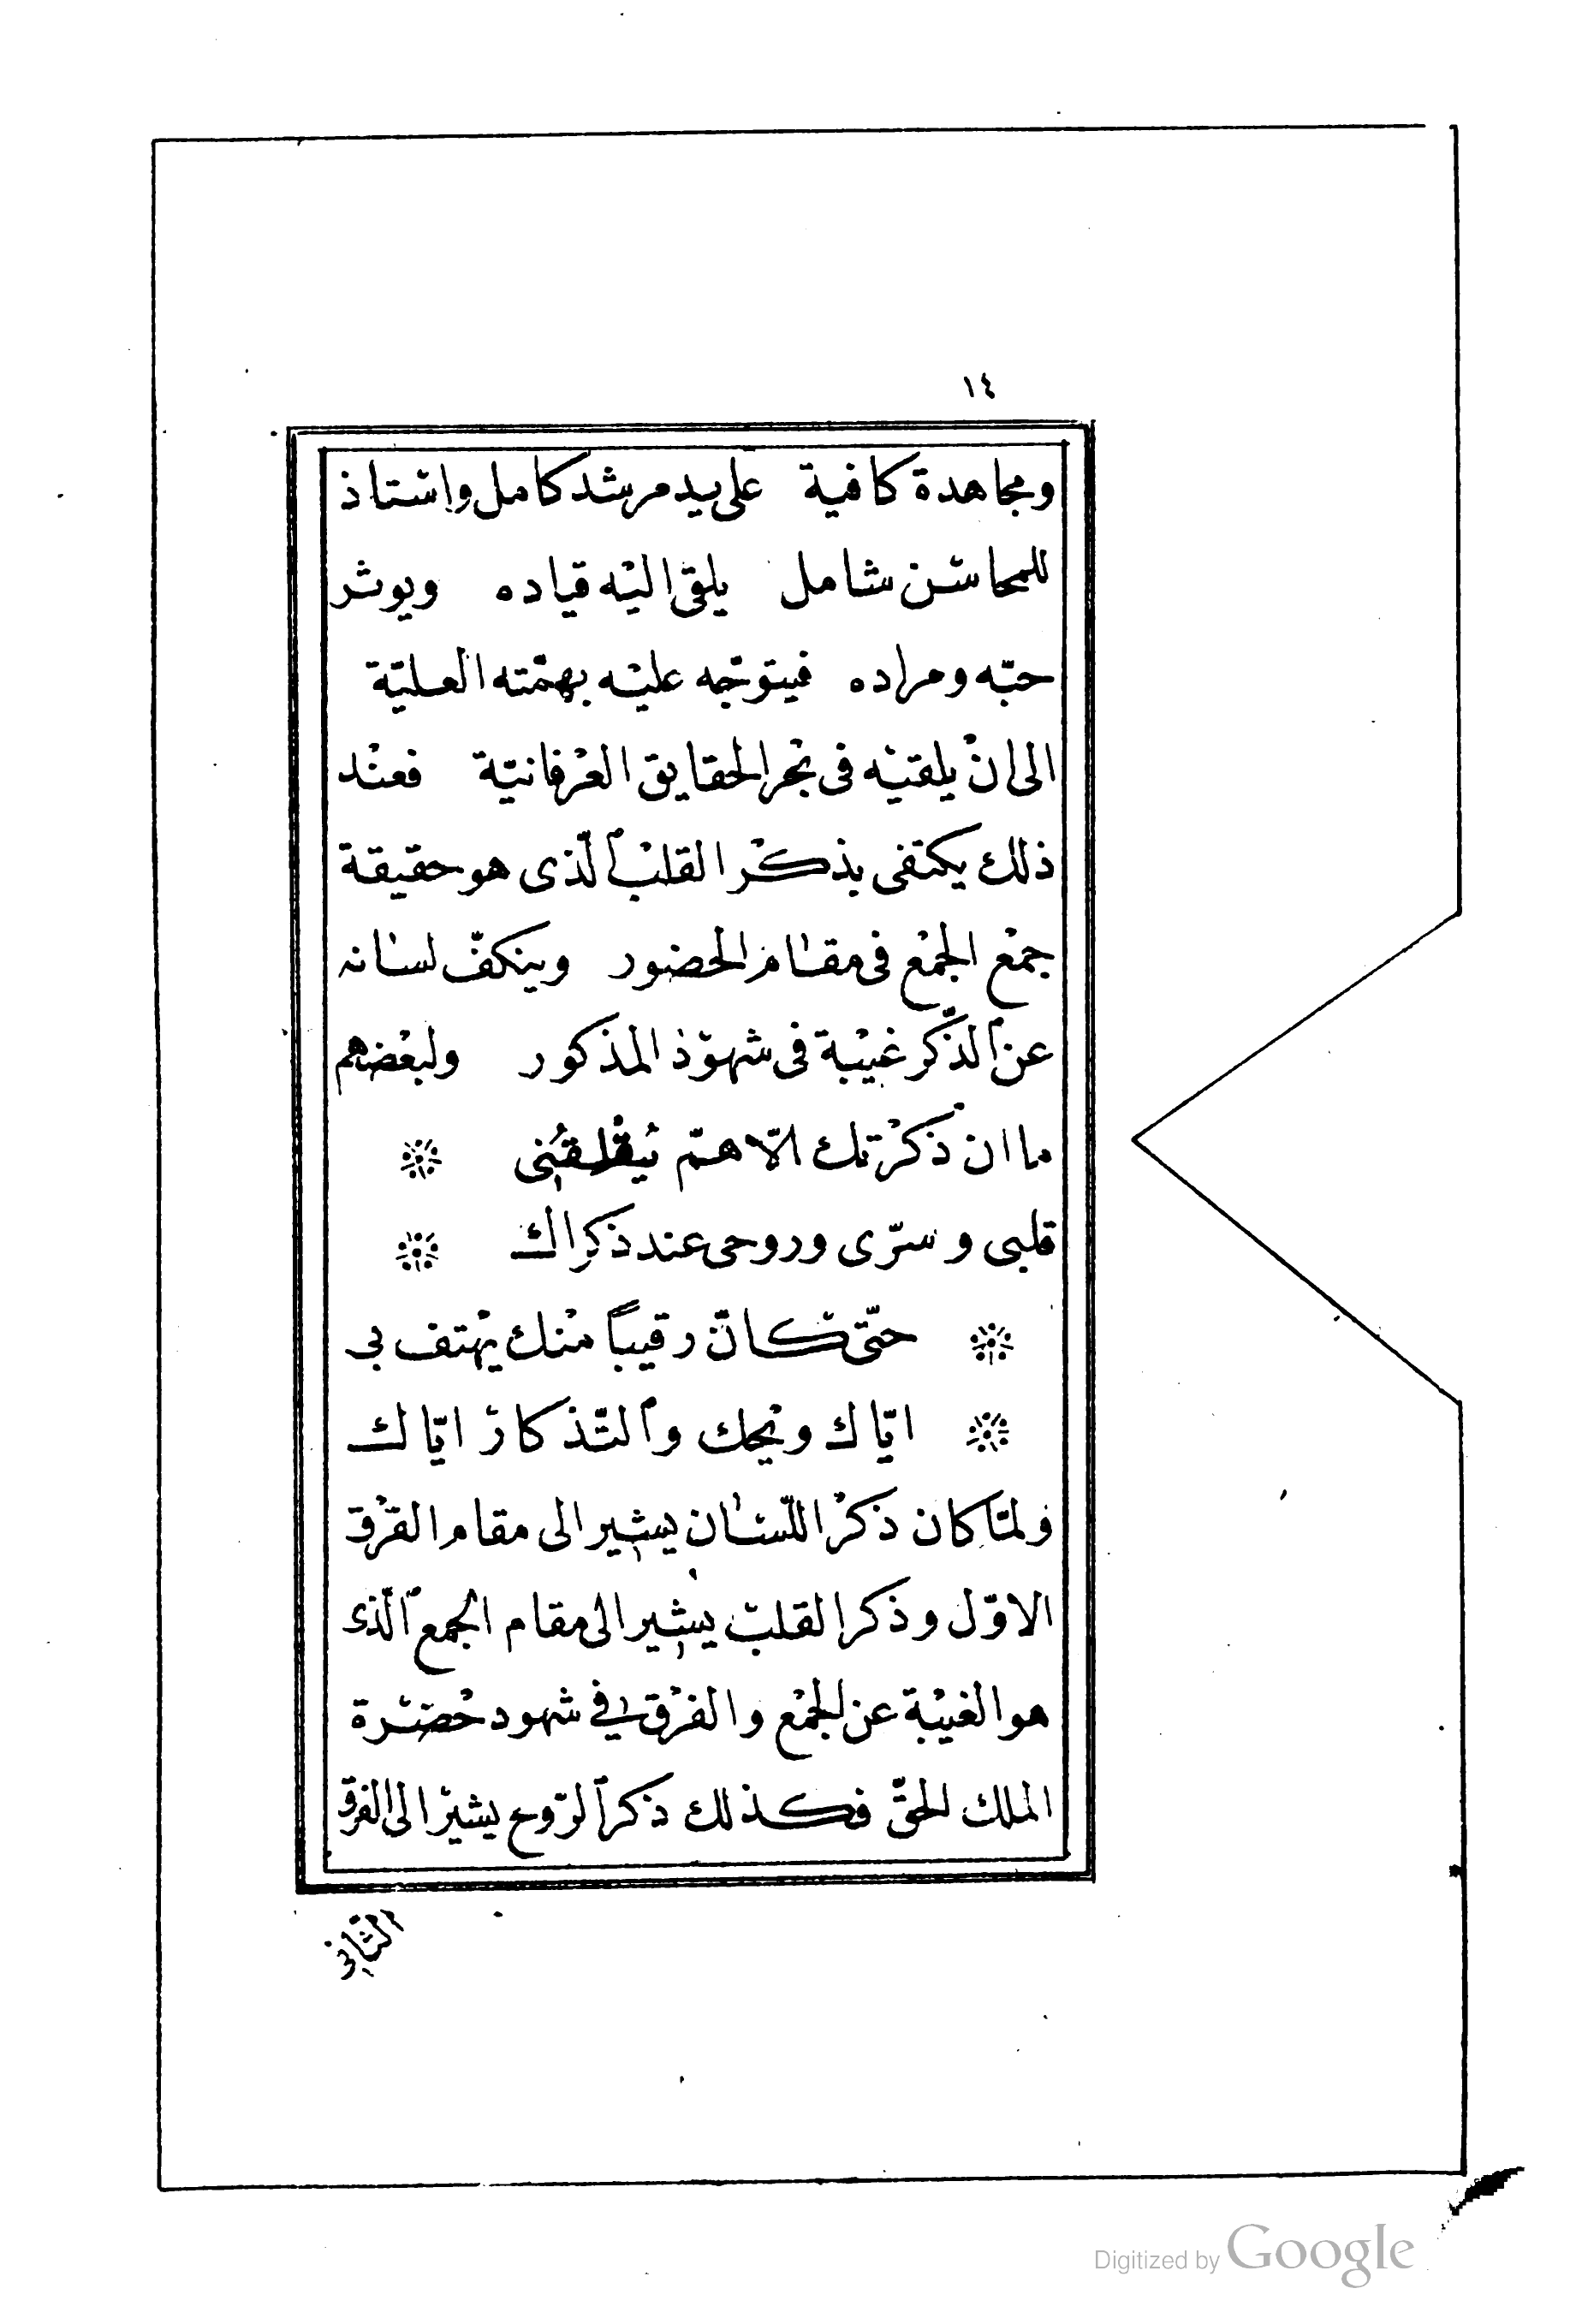 ١٤
ومجاهدة كافية على يد مرشد كامل واستاذ
للمحاسن شامل يلقى اليه قياده ويوثر
حبّه ومراده فيتوجّه عليه بهمّته العليّة
الى ان يلقيه فى بحر الحقايق العرفانيّة فعند
ذلك يكتفى بذكر القلب الّذى هو حقيقة
جمع الجمع فى مقام الحضور وينكفّ لسانه
عن الذّكر غيبة فى شهود المذكور ولبعضهم
ما ان ذكرتك الّا همّ يقلقنى
قلبى وسرّى وروحى عند ذكراك
حتّى كانّ رقيبًا منك يهتف بى
ايّاك ويحك والتّذكار ايّاك
ولمّا كان ذكر اللّسان يشير الى مقام الفرق
الاوّل وذكر القلب يشير الى مقام الجمع الّذى
هو الغيبة عن الجمع والفرق فى شهود حضرة
الملك الحقّ فكذلك ذكر الرّوح يشير الى الفرق
الثّانى
Digitized by Google